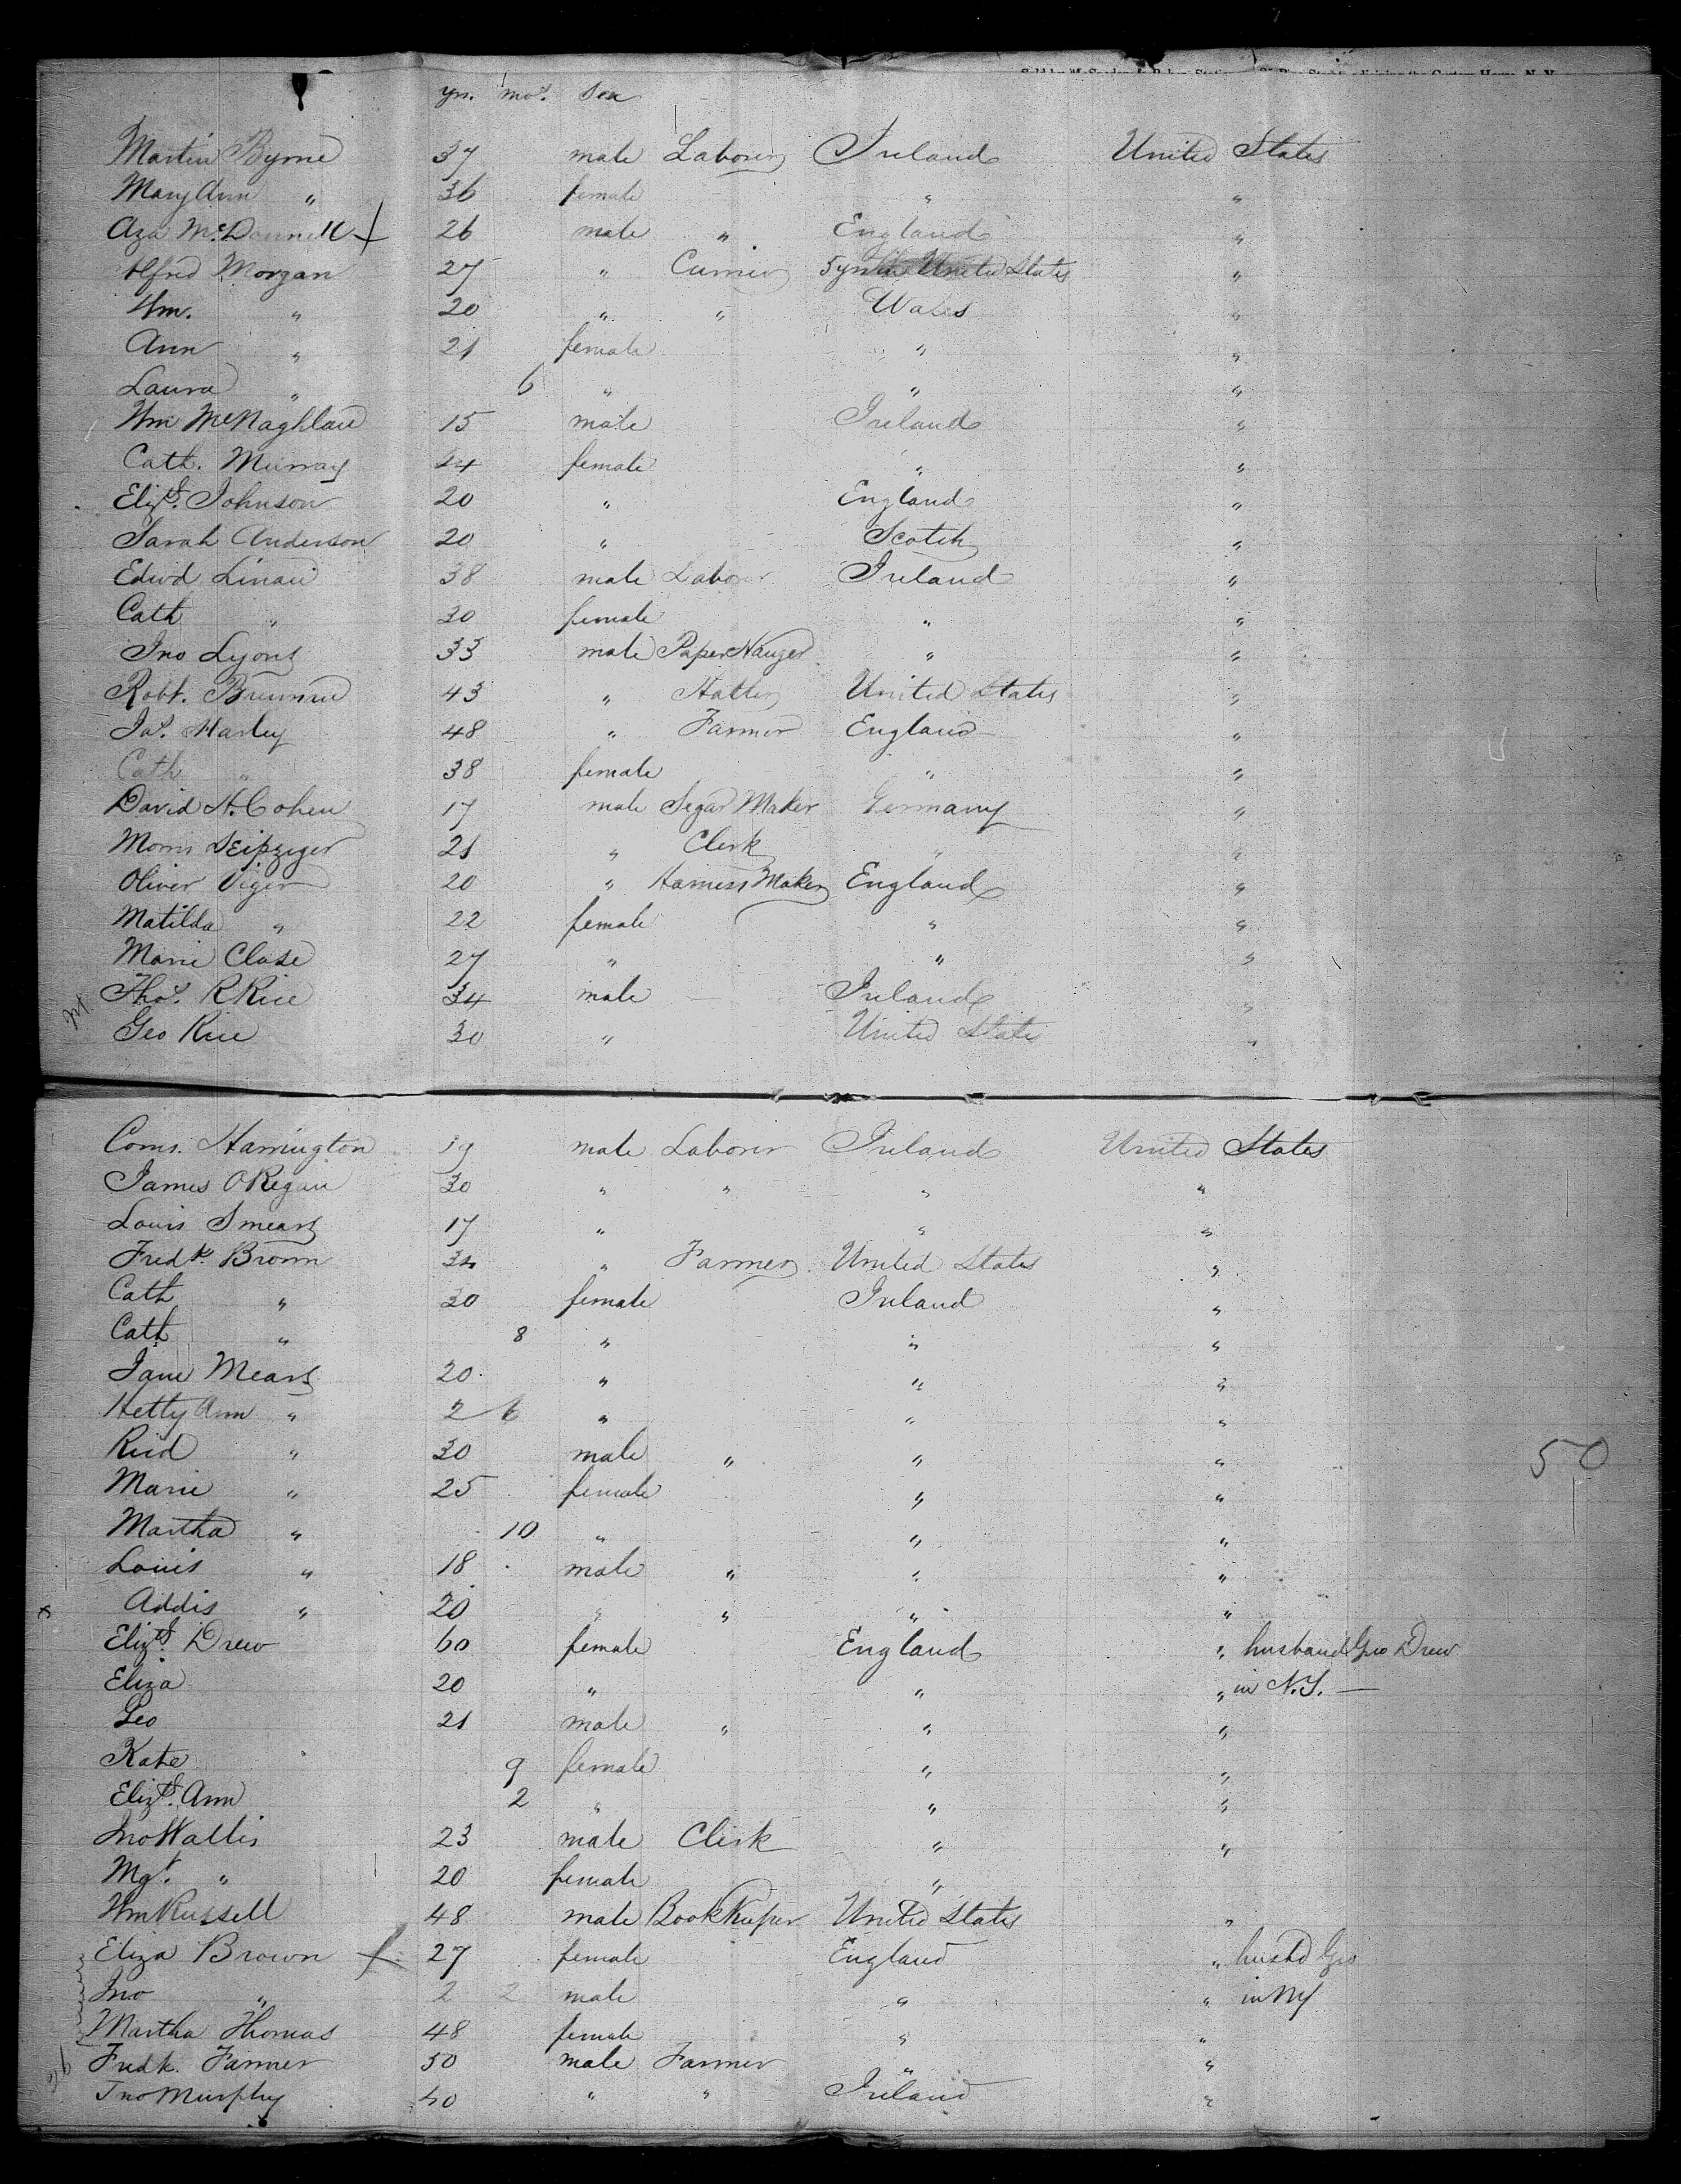 yrs. mos. Sex
Martin Byrne 37 male Laborer Ireland United States
Mary Ann " 36 female " "
Aza McDonnell 26 male " England "
Alfred Morgan 27 " Currier 5 yrs in United States "
Wm. " 20 " " Wales "
Ann " 21 female " "
Laura " 6 " " "
Wm McNaghlan 15 male Ireland "
Cath. Murray 24 female " "
Elizth. Johnson 20 " England "
Sarah Anderson 20 " Scotch "
Edwd Linan 38 male Laborer Ireland "
Cath " 30 female " "
Jno Lyons 33 male Paper Hanger " "
Robt. 43 " Hatter United States "
Jas. Harley 48 " Farmer England "
Cath " 38 female " "
David H. Cohen 17 male Segar Maker Germany "
Morris Leipziger 21 " Clerk " "
Oliver Viger 20 " Harness Maker England "
Matilda " 22 female " "
Marie Close 27 " " "
Thos. R Rice 34 male Ireland "
Geo Rice 30 " United States "
Corns. Harrington 19 male Laborer Ireland United States
James O Regan 30 " " " "
Louis Smears 17 " " "
Fredk. Brown 34 " Farmer United States "
Cath " 30 female Ireland "
Cath " 8 " " "
Jane Mears 20 " " "
Hetty Ann " 2 6 " " "
Reid " 30 male " " "
Marie " 25 female " "
Martha " 10 " " "
Louis " 18 male " " "
Addis " 20 " " " "
Elizth. Drew 60 female England " husband Geo Drew
Eliza 20 " " " in N.Y. —
Geo 21 male " " "
Kate 9 female " "
Elizth. Ann 2 " " "
Jno Wallis 23 male Clerk " "
Mgt. " 20 female "
Wm Russell 48 male Book Keeper United States "
Eliza Brown 27 female England " husbd Geo
Jno " 2 2 male " " in NY
Martha Thomas 48 female " "
Fredk. Farmer 50 male Farmer " "
Jno Murphy 40 " " Ireland "
50